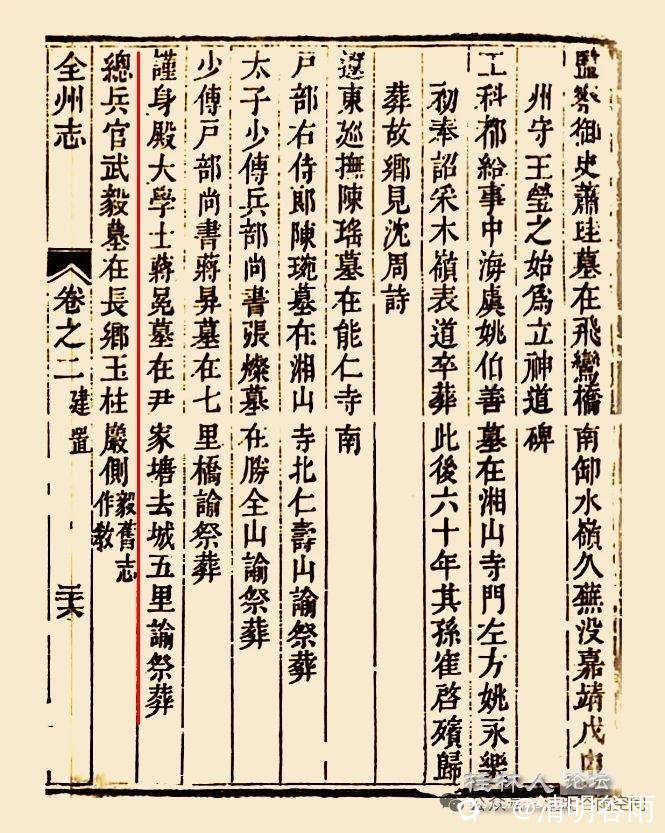 監察御史蕭珪墓在飛鸞橋南仰水嶺久蕪没嘉靖戊申
州守王瑩之始爲立神道碑
工科都給事中海虞姚伯善墓在湘山寺門左方姚永樂
初奉詔采木嶺表道卒葬此後六十年其孫崔啓殯歸
葬故鄉見沈周詩
遼東巡撫陳瑤墓在能仁寺南
戸部右侍郎陳琬墓在湘山寺北仁壽山諭祭葬
太子少傅兵部尚書張燦墓在勝全山諭祭葬
少傅戸部尚書蔣昇墓在七里橋諭祭葬
謹身殿大學士蔣冕墓在尹家塘去城五里諭祭葬
總兵官武毅墓在長鄉玉柱巖側毅舊志
作敎
全州志 卷之二 建置 三十六
桂林人论坛
@清明谷雨